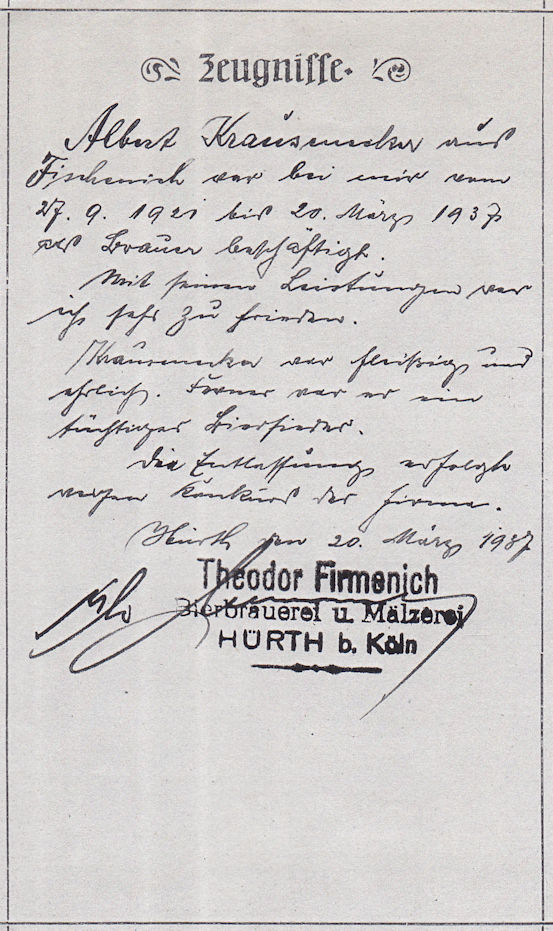 Zeugnisse.
Albert Krausenecker aus
Fischenich war bei mir vom
27. 9. 1921 bis 20. März 1937
als Brauer beschäftigt.
Mit seinen Leistungen war
ich sehr zu frieden.
Krausenecker war fleißig und
ehrlich. Ferner war er ein
tüchtiger Biersieder.
Die Entlassung erfolgte
wegen Konkurs der Firma.
Hürth den 20. März 1937
Theodor Firmenich
Bierbrauerei u. Mälzerei
HÜRTH b. Köln